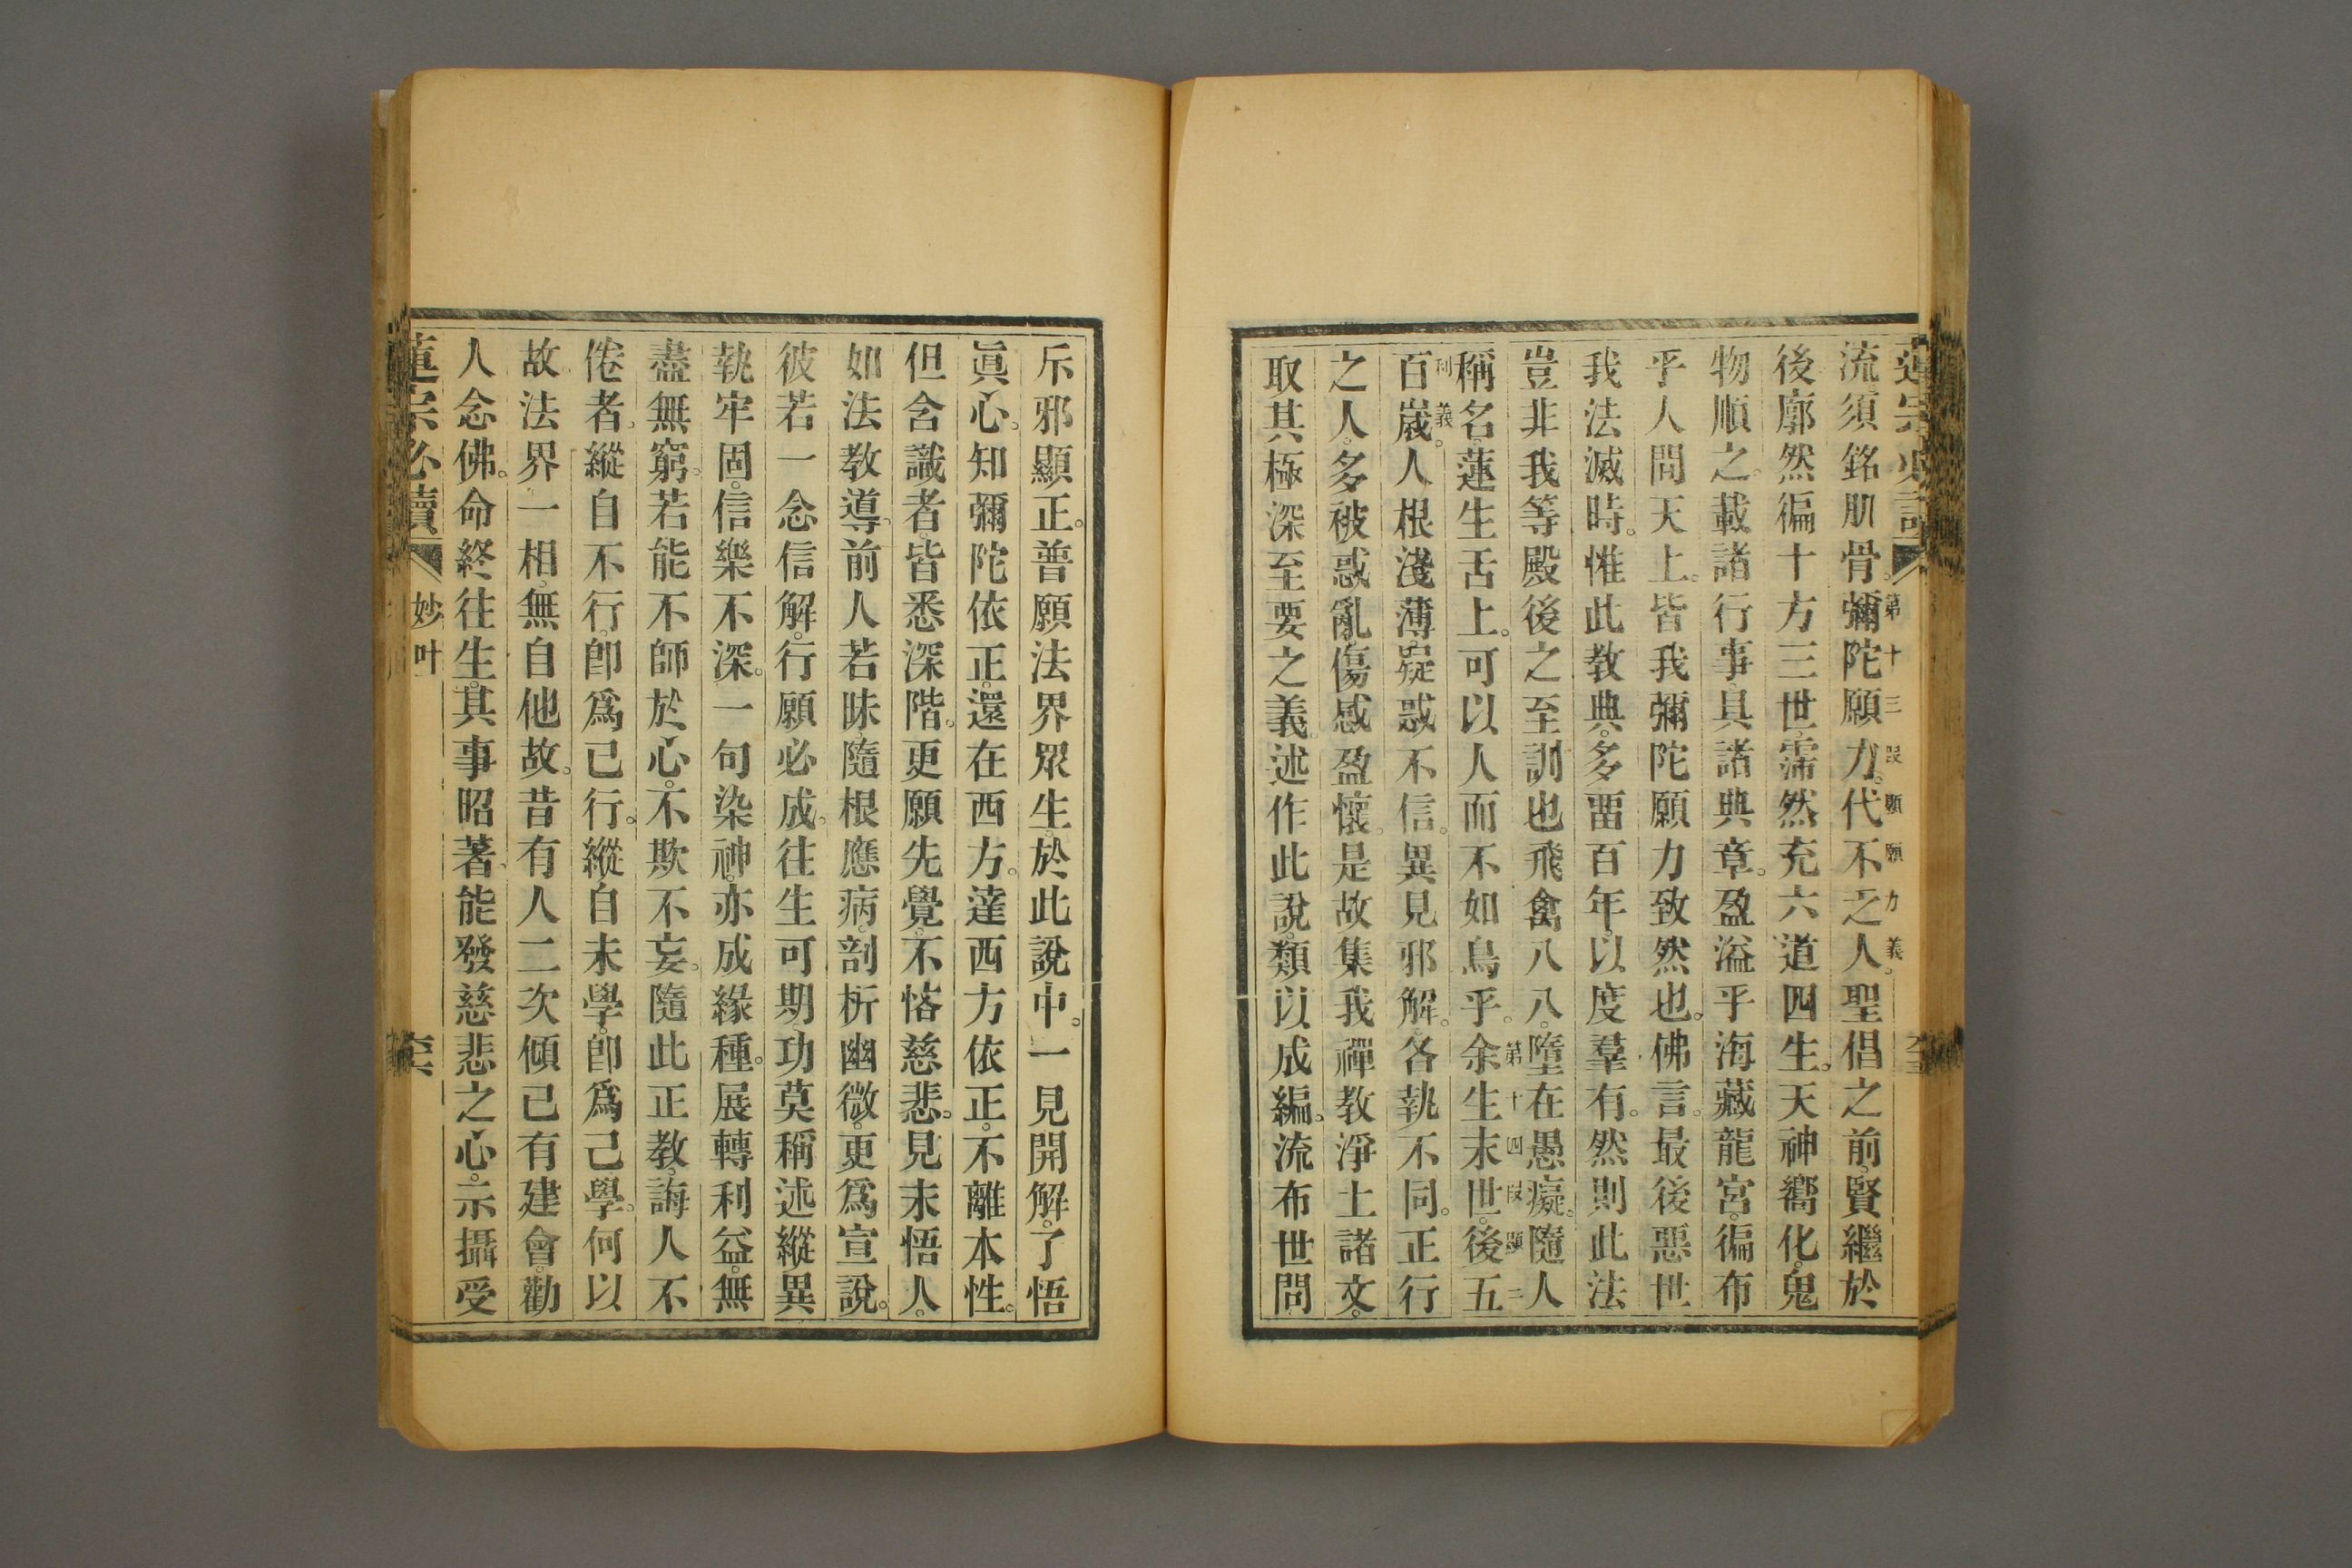 流須銘肌骨。彌陀願力。代不乏人聖倡之前。賢繼於
第十三段顯願力義。
後廓然徧十方三世。霈然充六道四生。天神嚮化。鬼
物順之。載諸行事。具諸典章。盈溢乎海藏龍宮。徧布
乎人間天上。皆我彌陀願力致然也。佛言。最後惡世
我法滅時。惟此教典。多畱百年。以度羣有。然則此法
豈非我等殿後之至訓也飛禽八八。墮在愚癡。隨人
稱名。蓮生舌上。可以人而不如鳥乎。余生末世。後五
第十四段顯三
利義。
百歲。人根淺薄。疑惑不信。異見邪解。各執不同。正行
之人。多被惑亂。傷感盈懷。是故集我禪教淨土諸文。
取其極深至要之義述作此說。類以成編。流布世間
斥邪顯正。普願法界眾生。於此說中。一見開解。了悟
眞心。知彌陀依正。還在西方。達西方依正。不離本性。
但含識者。皆悉深階。更願先覺。不悋慈悲。見未悟人。
如法教導。前人若昧。隨根應病。剖析幽微。更爲宣說。
彼若一念信解。行願必成。往生可期。功莫稱述縱異
執牢固。信樂不深。一句染神。亦成緣種。展轉利益。無
盡無窮。若能不師於心。不欺不妄。隨此正教。誨人不
倦者。縱自不行。卽爲已行。縱自未學。卽爲己學。何以
故。法界一相。無自他故。昔有人二次傾已有建會。勸
人念佛。命終往生。其事昭著。能發慈悲之心。示攝受
蓮宗必讀
妙叶